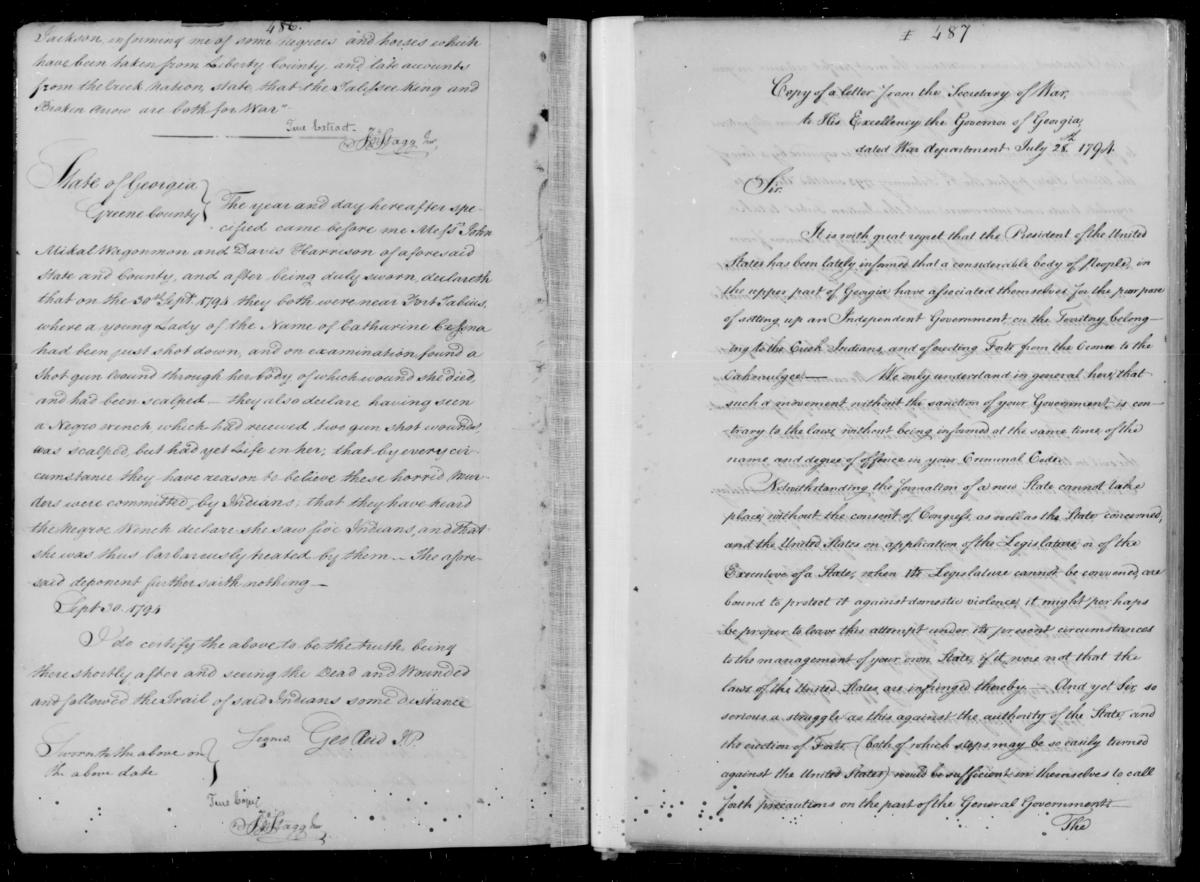 486.
Jackson, informing me of some negroes and horses which
have been taken from Liberty County, and late accounts
from the Creek Nation, state, that the Talissee King and
Broken Arrow are both for War"
True Extract.
Jno Stagg Jnr,
State of Georgia
Greene County
The year and day hereafter spe-
cified came before me Messrs. John
Midal Wagonmon and Davis Harrison of aforesaid
State and County, and after being duly sworn, declareth
that on the 30th Sept. 1794 they both were near Fort Fabius,
where a young Lady of the Name of Catharine Cessna
had been just shot down, and on examination, found a
shot gun wound through her body of which wound she died,
and had been scalped — they also declare having seen
a Negro wench which had received two gun shot wounds,
was scalped, but had yet Life in her, that by every cir-
cumstance they have reason to believe these horrid Mur-
ders were committed, by Indians; that they have heard
the Negroe Wench declare she saw five Indians, and that
she was thus barbarously treated by them — The afore-
said deponent further saith nothing —
Sept. 30. 1794
I do certify the above to be the truth being
there shortly after and seeing the Dead and Wounded
and followed the Trail of said Indians some distance
Signed Geo Reid J.P.
Sworn to the above on
the above date
True Copy
Jno Stagg Jnr
487
Copy of a letter from the Secretary of War,
to His Excellency the Governor of Georgia,
dated War department July 28th. 1794
Sir.
It is with great regret that the President of the United
States has been lately informed that a considerable body of People, in
the upper part of Georgia have associated themselves for the purpose
of setting up an Independent Government on the Territory belong-
ing to the Creek Indians, and of erecting Forts from the Oconee to the
Oakmulgee. — We only understand in general here, that
such a movement without the sanction of your Government, is con-
trary to the laws, without being informed at the same time, of the
name and degree of offence in your Criminal Code.
Notwithstanding the formation of a new State cannot take
place, without the consent of Congress, as well as the State concerned,
and the United States on application of the Legislature, or of the
Executive of a State, when its Legislature cannot be convened, are
bound to protect it against domestic violence; it might perhaps
be proper to leave this attempt under its present circumstances
to the management of your own State, if it were not that the
laws of the United States, are infringed thereby. And yet Sir, so
serious a struggle as this against the authority of the State, and
the erection of Forts (both of which steps may be so easily turned
against the United States) would be sufficient in themselves to call
forth precautions on the part of the General Government.
The